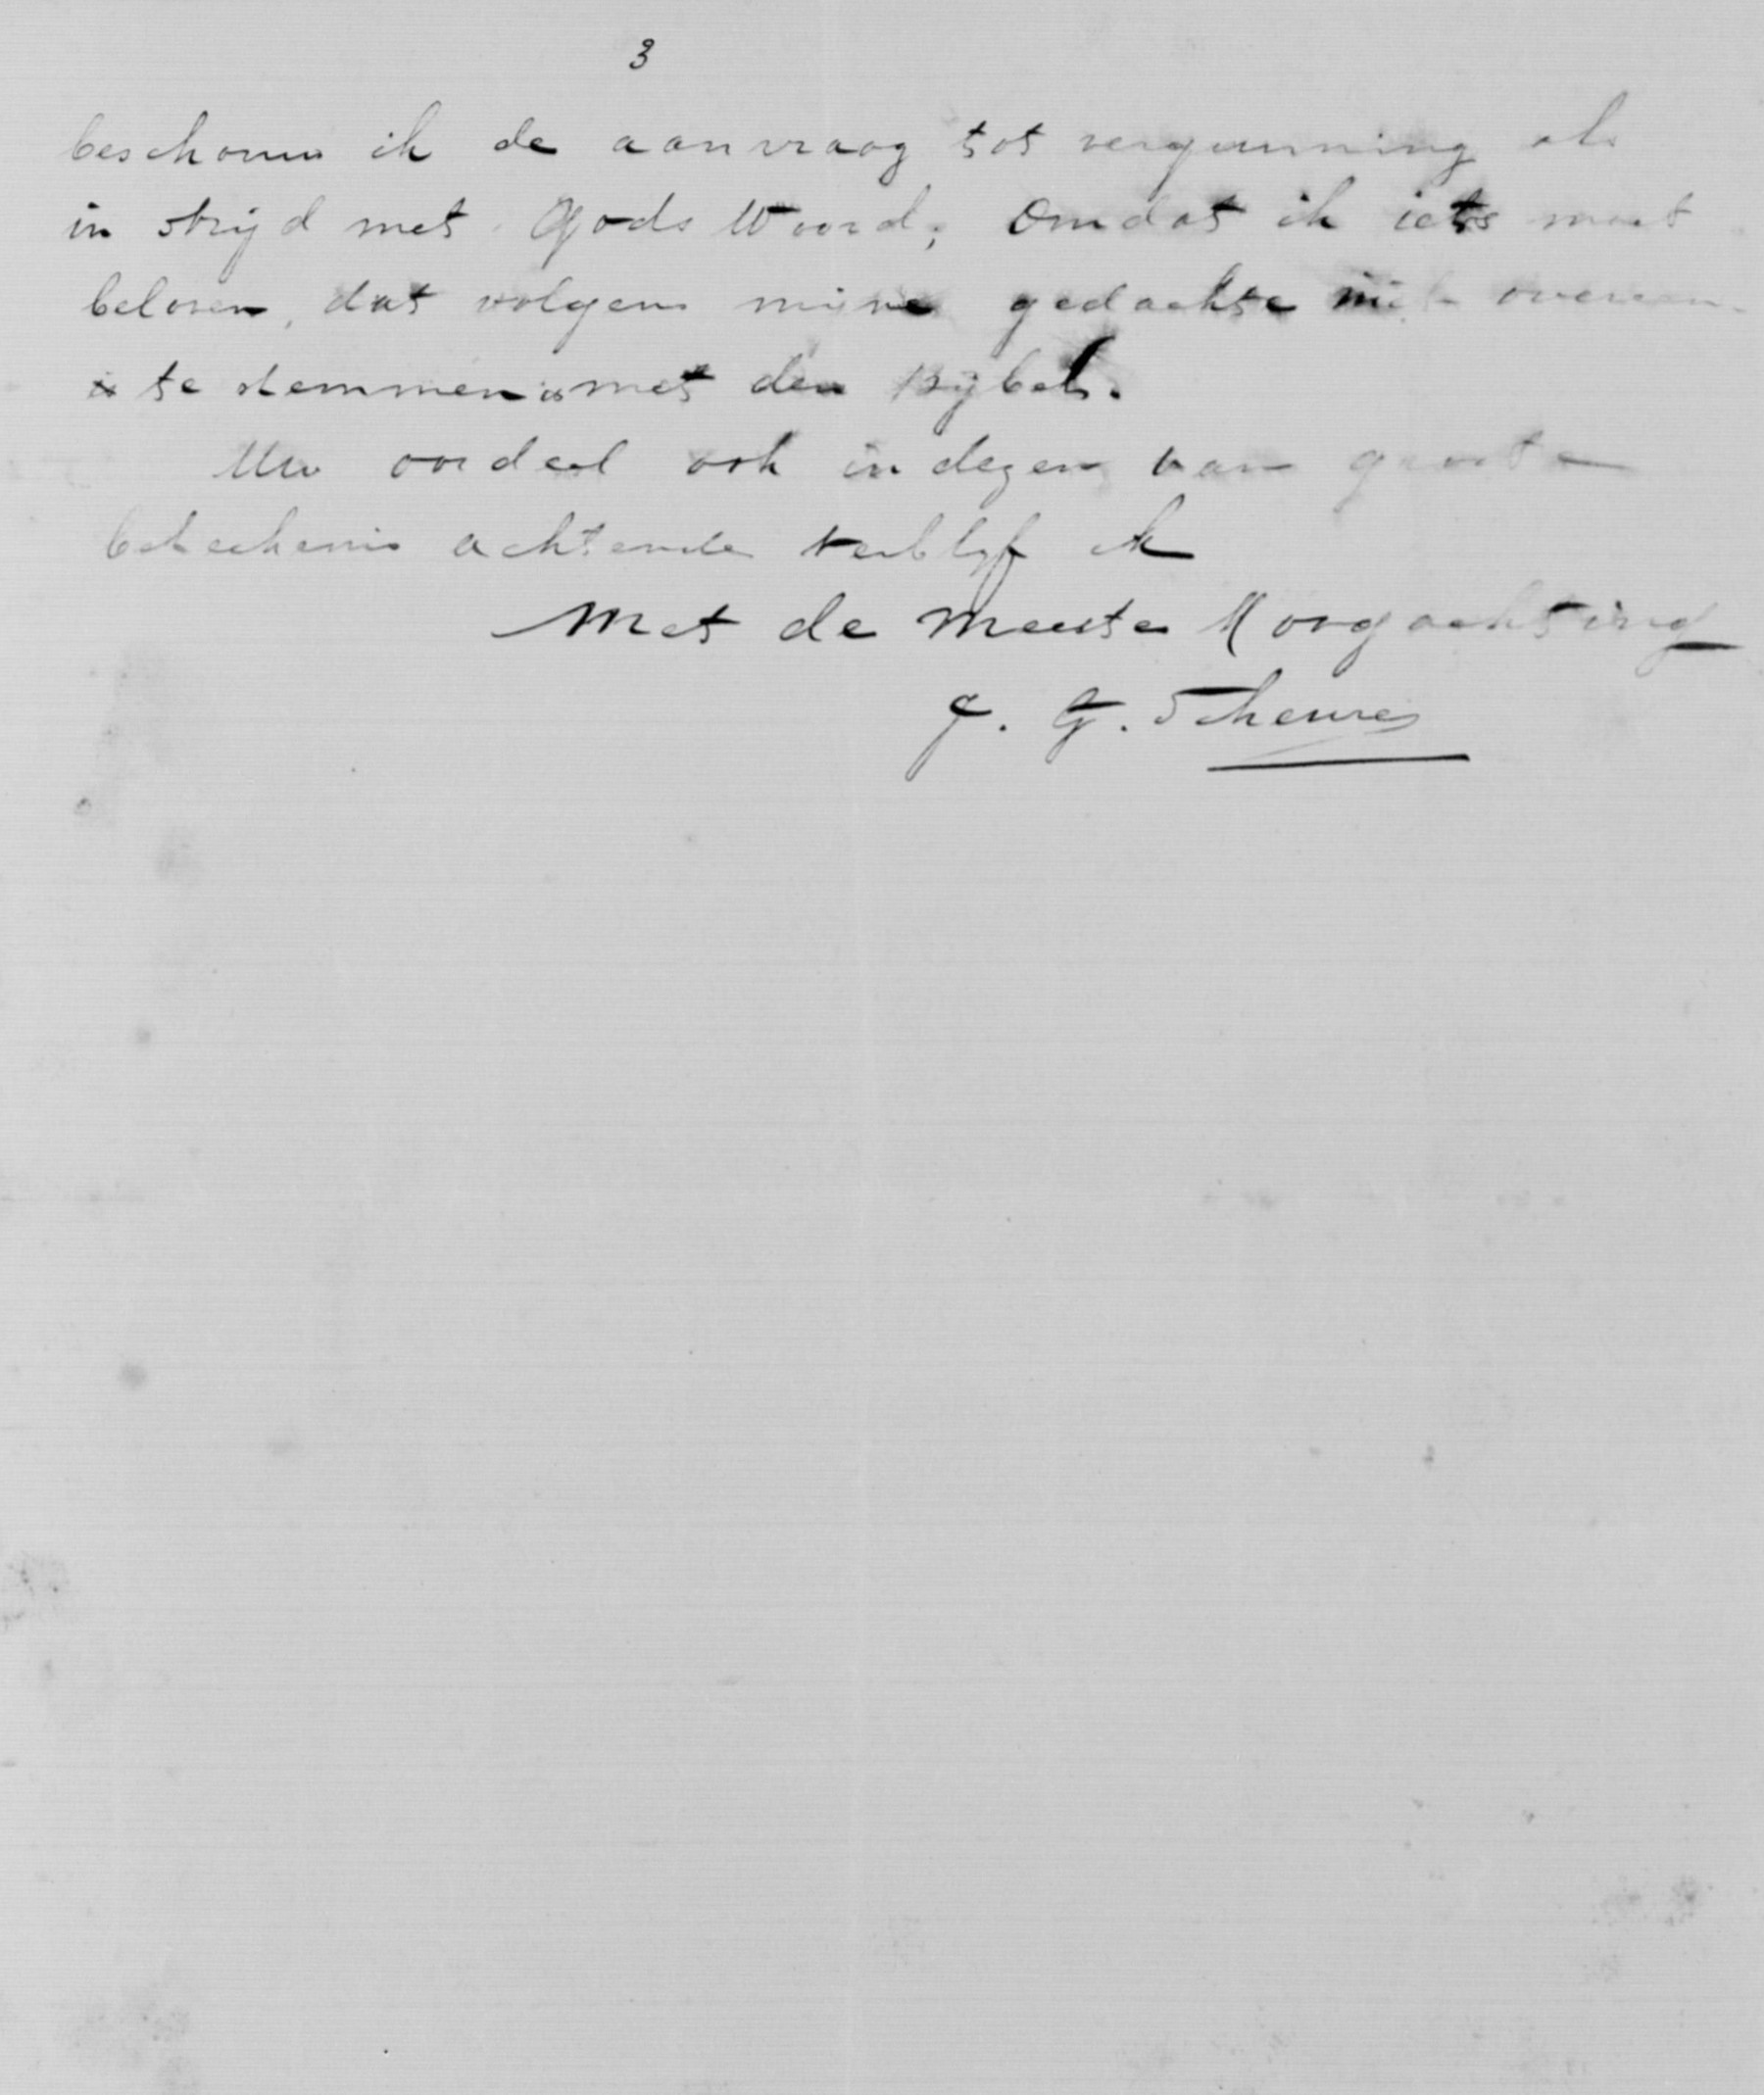 3
beschouw ik de aanvraag tot vergunning als
in strijd met Gods Woord; omdat ik iets moet
beloven, dat volgens mijne gedachte niet overeen
te stemmen is met den Bijbel.
Uw oordeel ook in dezen van groote
beteekenis achtende verblijf ik
Met de meeste Hoogachting
J. G. Scheurer